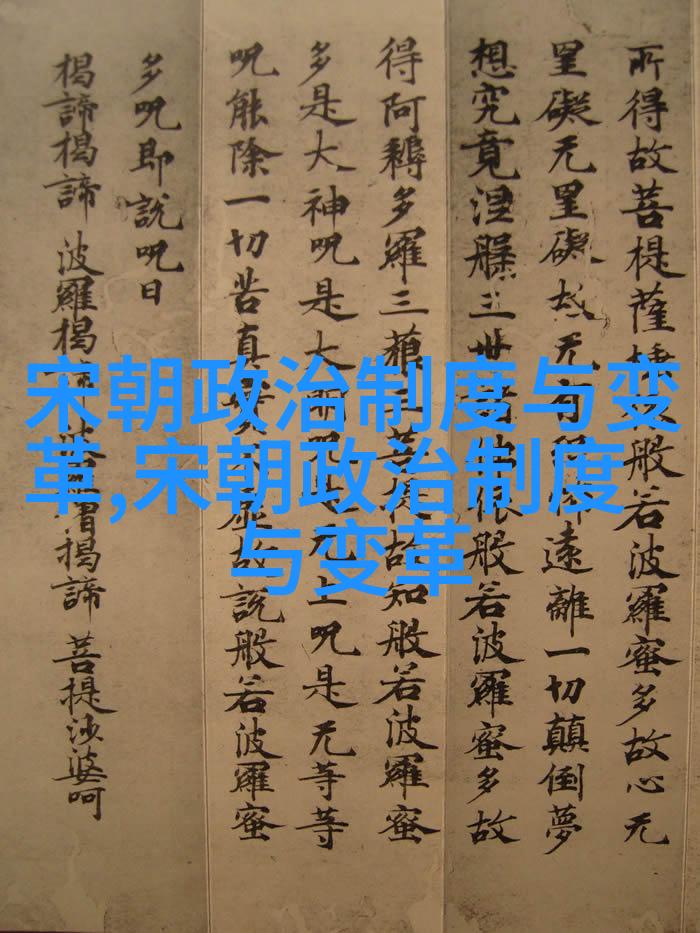 所得故菩提薩埵依般若波羅蜜多故心无
罣礙无罣礙故无有恐怖遠離一切顛倒夢
想究竟涅槃三世諸佛依般若波羅蜜多故
得阿耨多羅三藐三菩提故知般若波羅蜜
多是大神呪是大明呪是无上呪是无等等
呪能除一切苦真實不虛故說般若波羅蜜
多呪即說呪曰
揭諦揭諦 波羅揭諦 婆羅僧揭諦 菩提沙婆呵
宋朝政治制度与变
革,宋朝政治制度
与变革